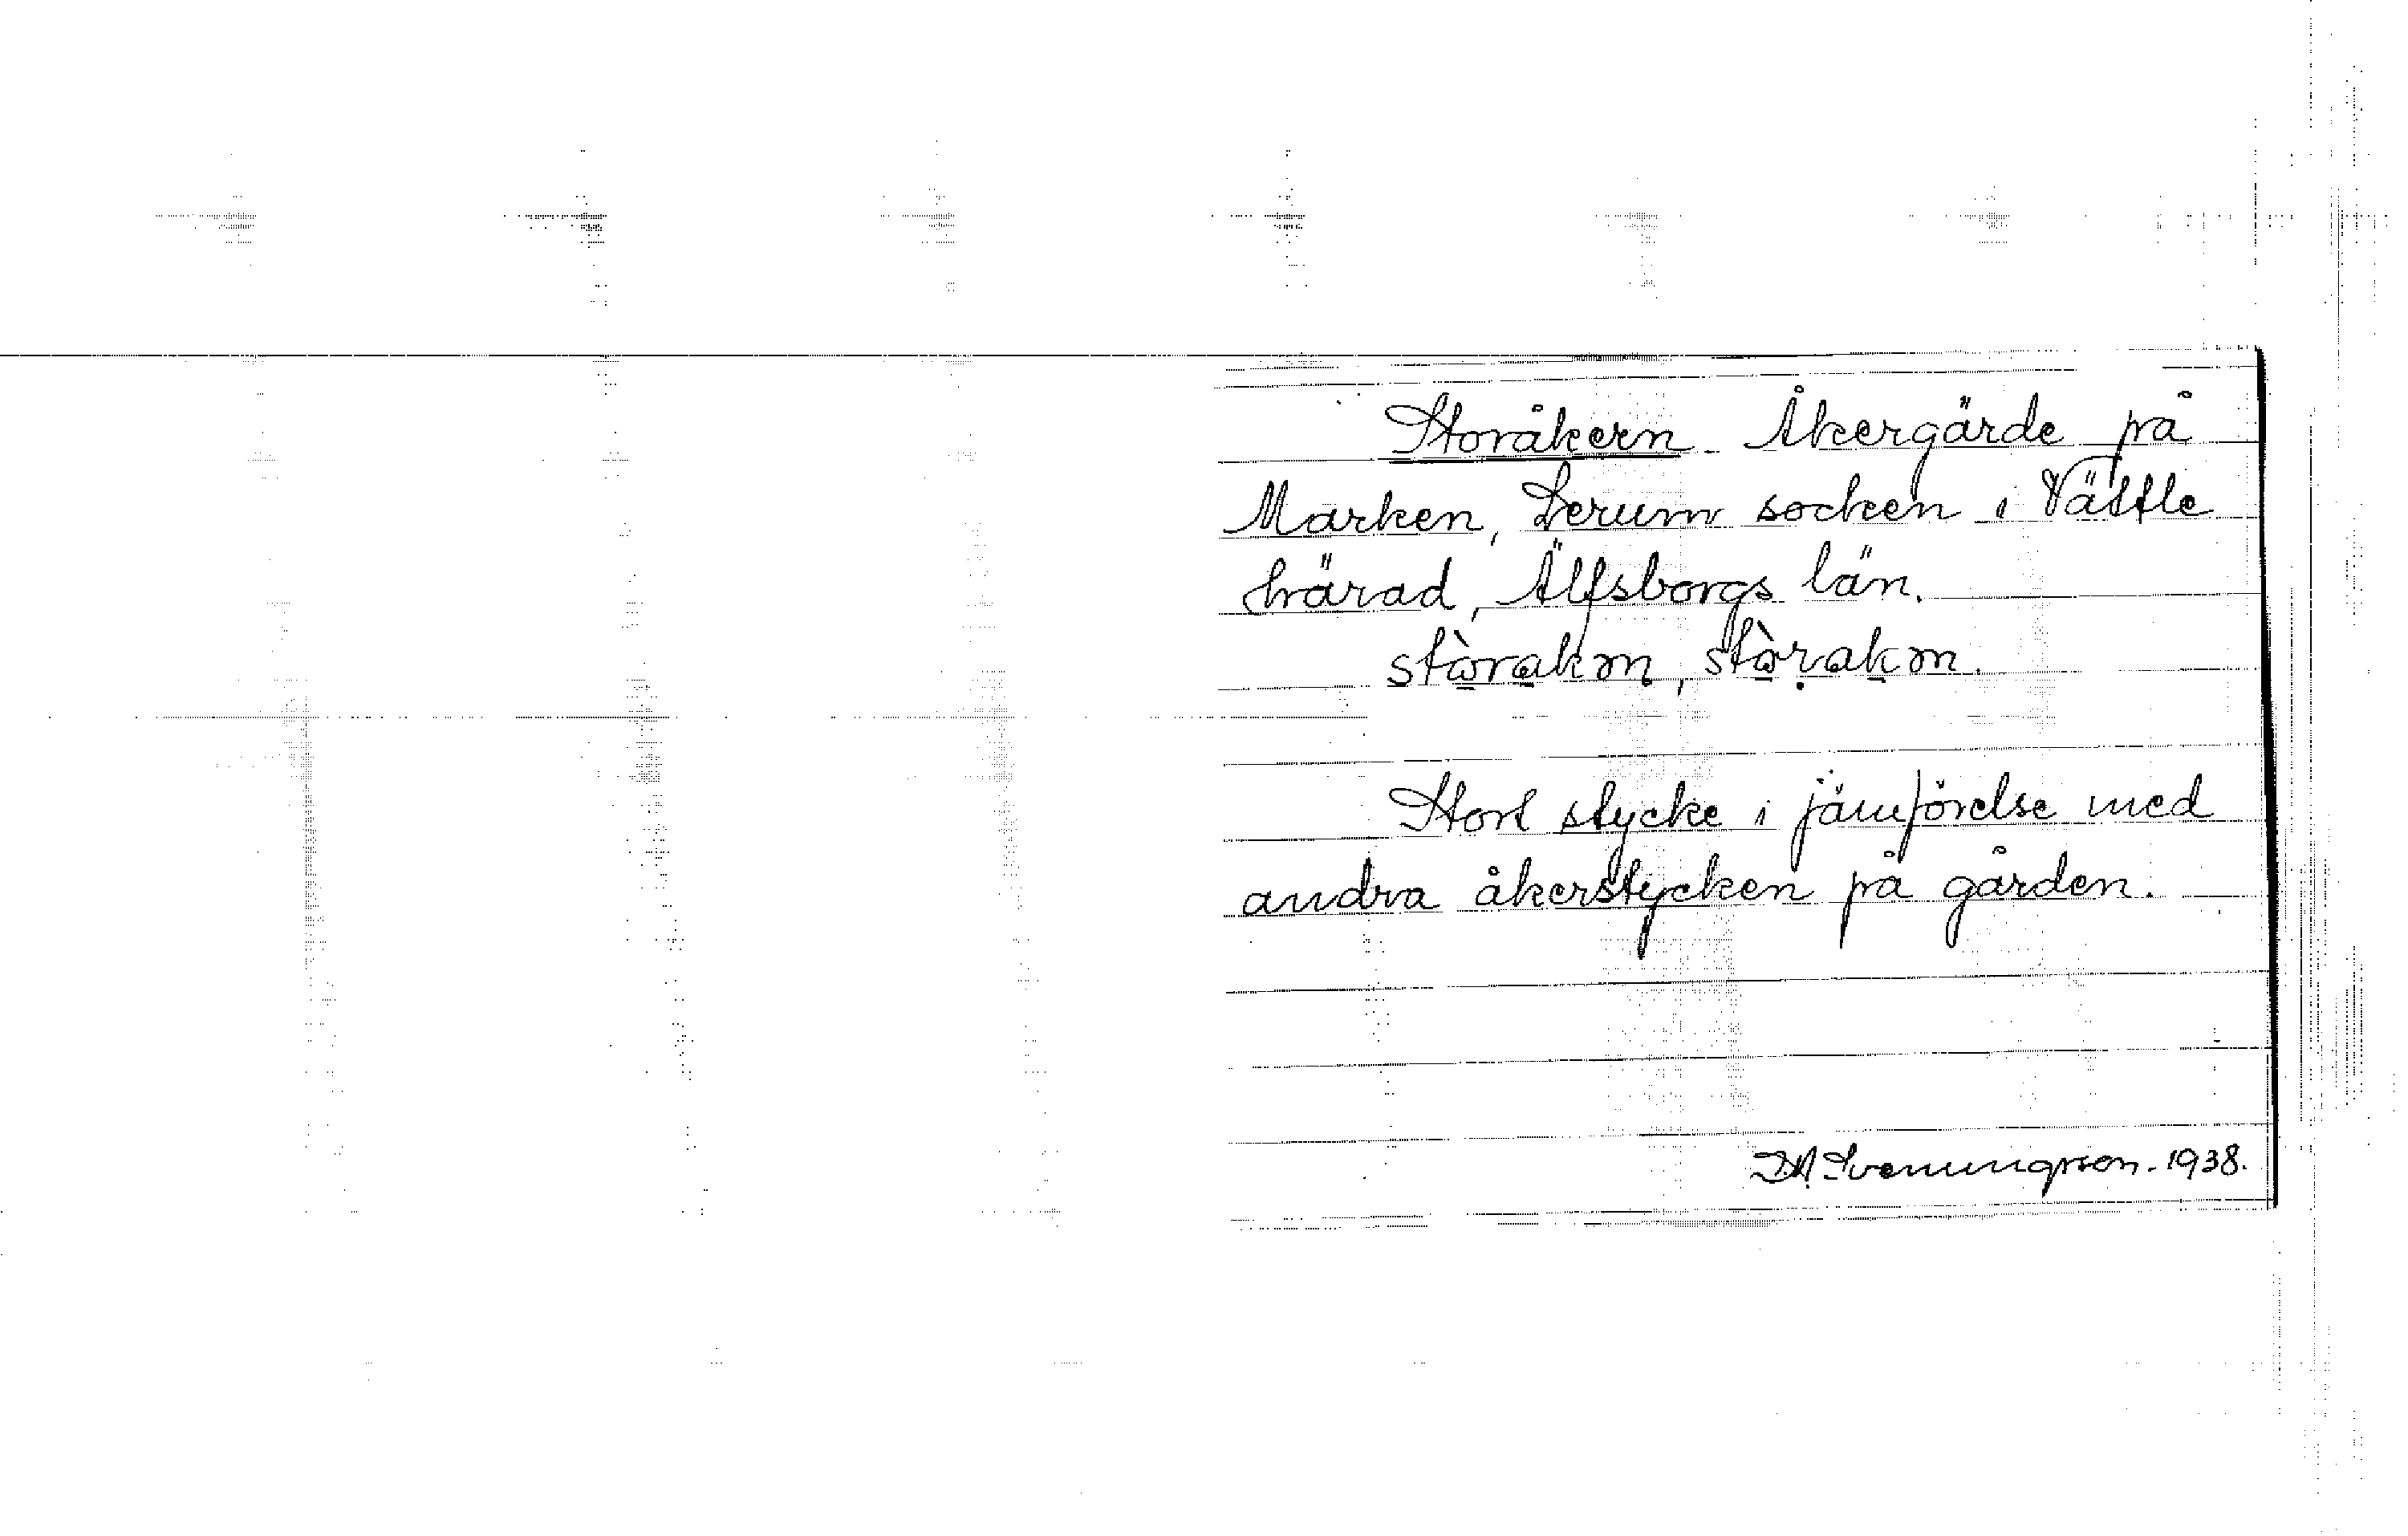 Storåkern. Åkergärde på
Marken, Lerum socken i Vättle
härad, Älfsborgs län.
Stort stycke i jämförelse med
andra åkerstycken på gården.
D.A. Svenungsson. 1938.